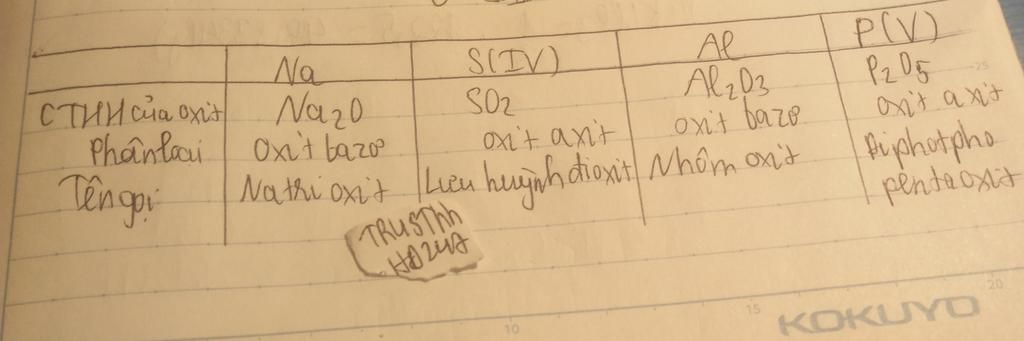 Na S(IV) Al P(V)
CTHH của oxit Na2O SO2 Al2O3 P2O5
Phân loại oxit bazơ oxit axit oxit bazơ oxit axit
Tên gọi Natri oxit Lưu huỳnh đioxit Nhôm oxit Điphotpho
pentaoxit
TRUSThh
10 15 20
KOKUYO